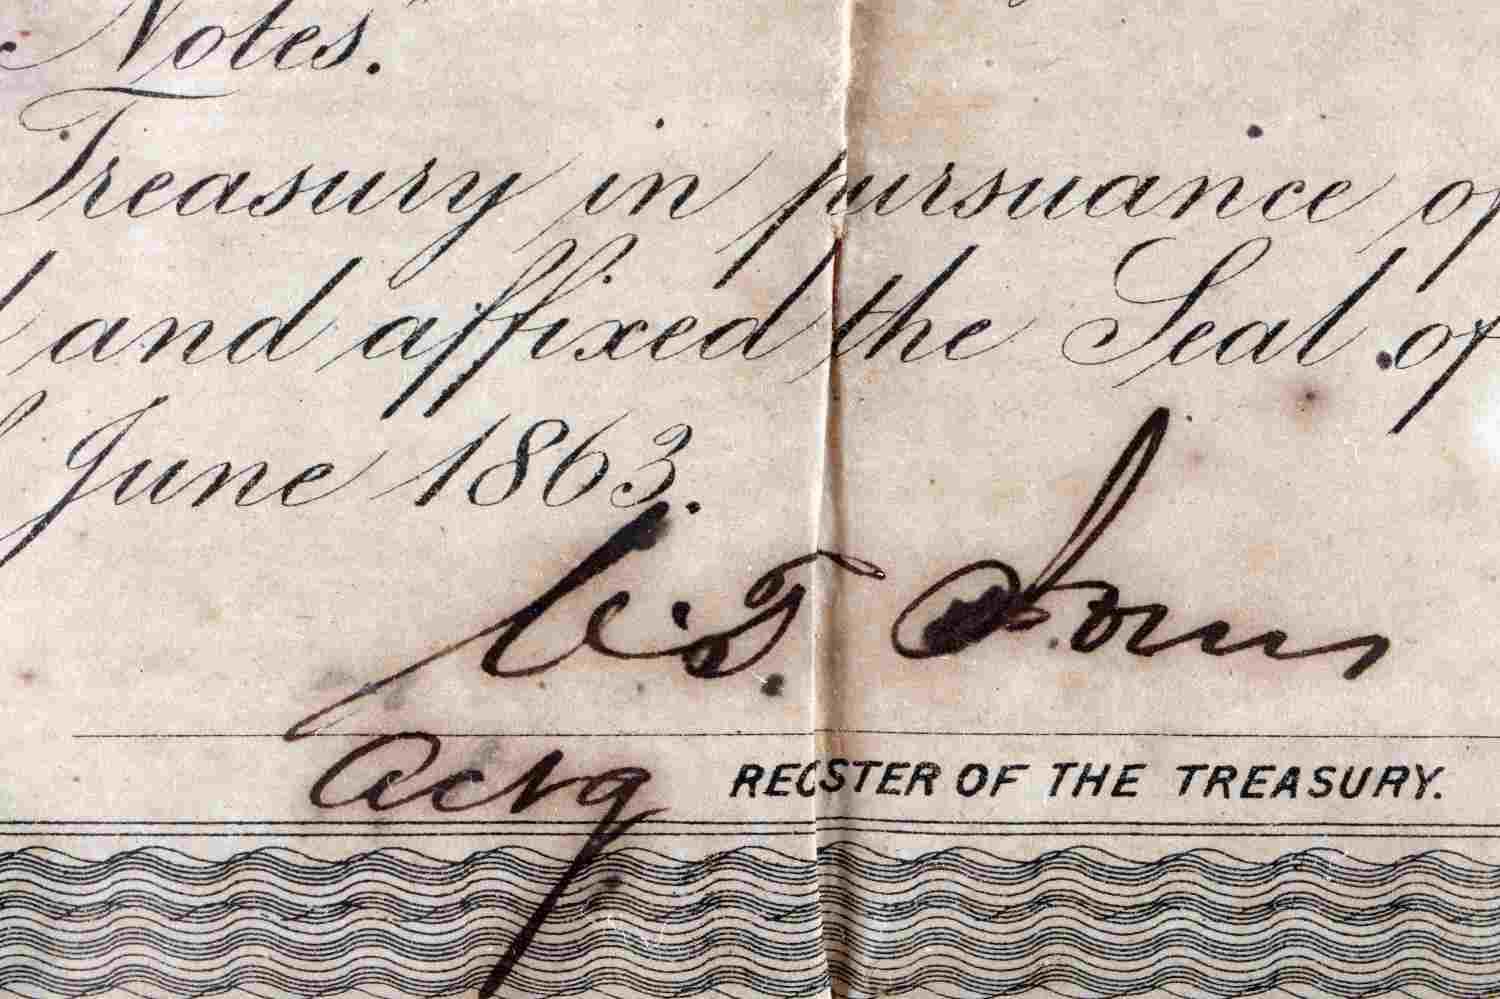 Notes."
Treasury in pursuance of
and affixed the Seal of
June 1863.
C. T. Jones
Actg REGSTER OF THE TREASURY.